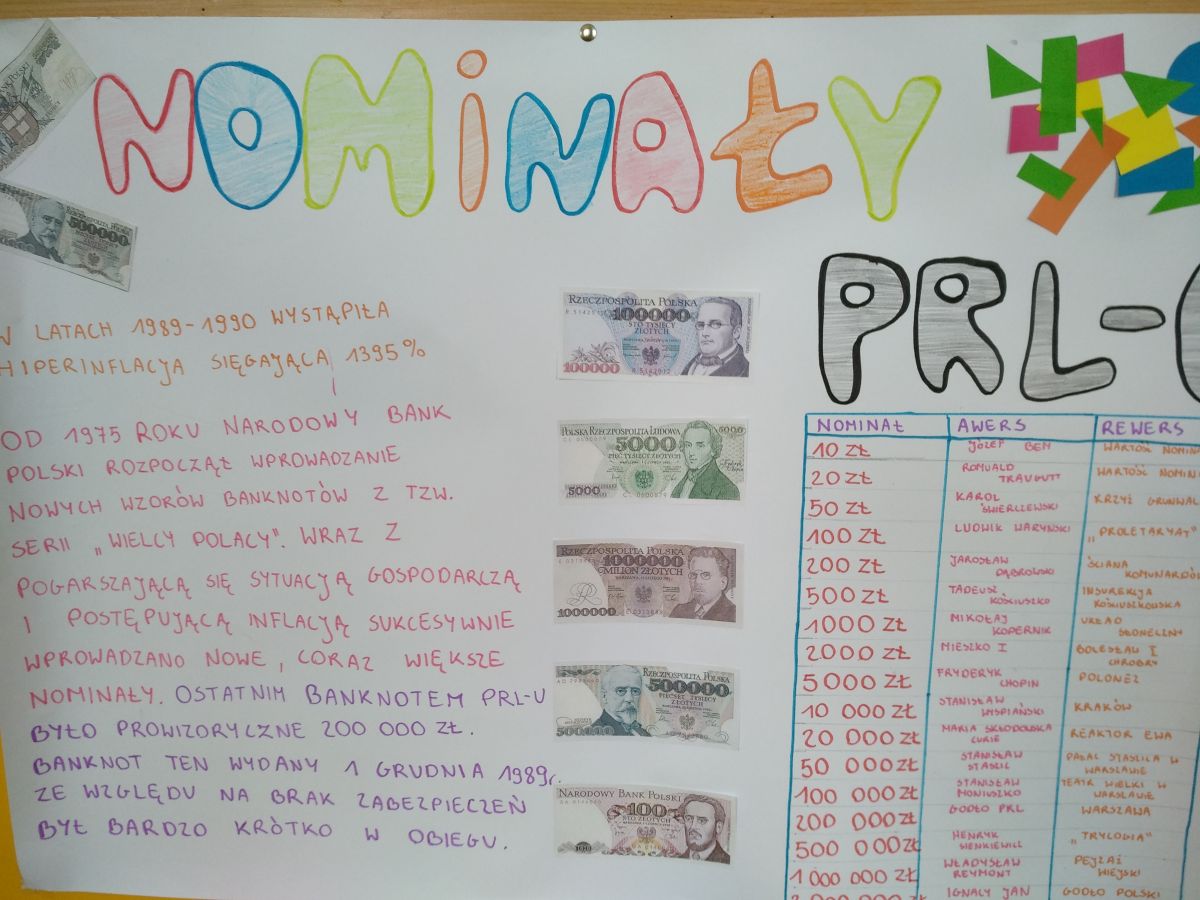 NOMiNAŁY
PRL-
500000
W LATACH 1989-1990 WYSTĄPIŁA
HIPERINFLACJA SIĘGAJĄCA 1395%
OD 1975 ROKU NARODOWY BANK
POLSKI ROZPOCZĄŁ WPROWADZANIE
NOWYCH WZORÓW BANKNOTÓW Z TZW.
SERII „WIELCY POLACY". WRAZ Z
POGARSZAJĄCĄ SIĘ SYTUACJĄ GOSPODARCZĄ
I POSTĘPUJĄCĄ INFLACJĄ SUKCESYWNIE
WPROWADZANO NOWE, CORAZ WIĘKSZE
NOMINAŁY. OSTATNIM BANKNOTEM PRL-U
BYŁO PROWIZORYCZNE 200 000 ZŁ.
BANKNOT TEN WYDANY 1 GRUDNIA 1989r.
ZE WZGLĘDU NA BRAK ZABEZPIECZEŃ
BYŁ BARDZO KRÓTKO W OBIEGU.
RZECZPOSPOLITA POLSKA
100000
STO TYSIĘCY
ZŁOTYCH
100000
POLSKA RZECZPOSPOLITA LUDOWA
5000
5000
PIĘĆ TYSIĘCY ZŁOTYCH
5000
RZECZPOSPOLITA POLSKA
1000000
MILION ZŁOTYCH
1000000
RZECZPOSPOLITA POLSKA
500000
PIĘĆSET TYSIĘCY
ZŁOTYCH
500000
NARODOWY BANK POLSKI
100
STO ZŁOTYCH
100
NOMINAŁ AWERS REWERS
10 ZŁ JÓZEF BEM WARTOŚĆ NOMIN
20 ZŁ ROMUALD TRAUGUTT WARTOŚĆ NOMIN
50 ZŁ KAROL ŚWIERCZEWSKI KRZYŻ GRUNWAL
100 ZŁ LUDWIK WARYŃSKI „PROLETARYAT"
200 ZŁ JAROSŁAW DĄBROWSKI ŚCIANA KOMUNARDÓ
500 ZŁ TADEUSZ KOŚCIUSZKO INSUREKCJA KOŚCIUSZKOWSKA
1000 ZŁ MIKOŁAJ KOPERNIK UKŁAD SŁONECZNY
2000 ZŁ MIESZKO I BOLESŁAW I CHROBRY
5000 ZŁ FRYDERYK CHOPIN POLONEZ
10 000 ZŁ STANISŁAW WYSPIAŃSKI KRAKÓW
20 000 ZŁ MARIA SKŁODOWSKA CURIE REAKTOR EWA
50 000 ZŁ STANISŁAW STASZIC PAŁAC STASZICA W WARSZAWIE
100 000 ZŁ STANISŁAW MONIUSZKO TEATR WIELKI W WARSZAWIE
200 000 ZŁ GODŁO PRL WARSZAWA
500 000 ZŁ HENRYK SIENKIEWICZ „TRYLOGIA"
1 000 000 ZŁ WŁADYSŁAW REYMONT PEJZAŻ WIEJSKI
IGNACY JAN GODŁO POLSKI